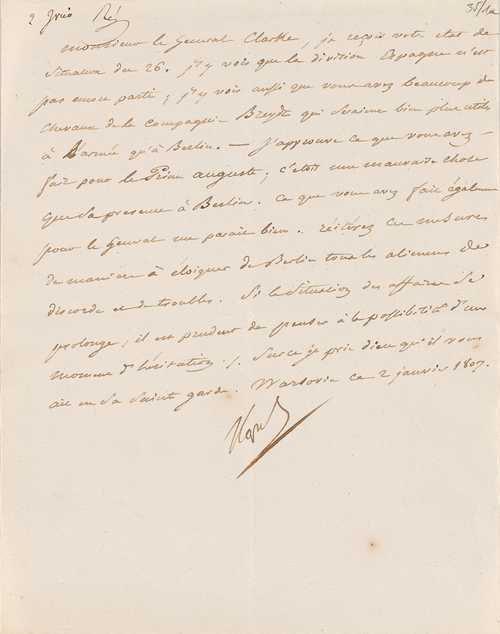 2 Janvr Rép
35/1a
Monsieur le Général Clarke, je reçois votre état de
Situation du 26. j'y vois que la division Espagne n'est
pas encore partie; j'y vois aussi que vous avez beaucoup de
chevaux de la compagnie Breydt qui seraient bien plus utiles
à l'armée qu'à Berlin. — J'approuve ce que vous avez
fait pour le Prince auguste; c'etoit une mauvaise chose
que sa presence à Berlin. Ce que vous avez fait également
pour le General me parait bien. réitérez ces mesures
de maniere à éloigner de Berlin tous les alimens de
discorde et de troubles. Si la Situation des affaires se
prolonge, il est prudent de penser à la possibilité d'un
moment d'hésitation ./. Sur ce je prie dieu qu'il vous
ait en sa Sainte garde. Warsovie ce 2 janvier 1807.
Nap